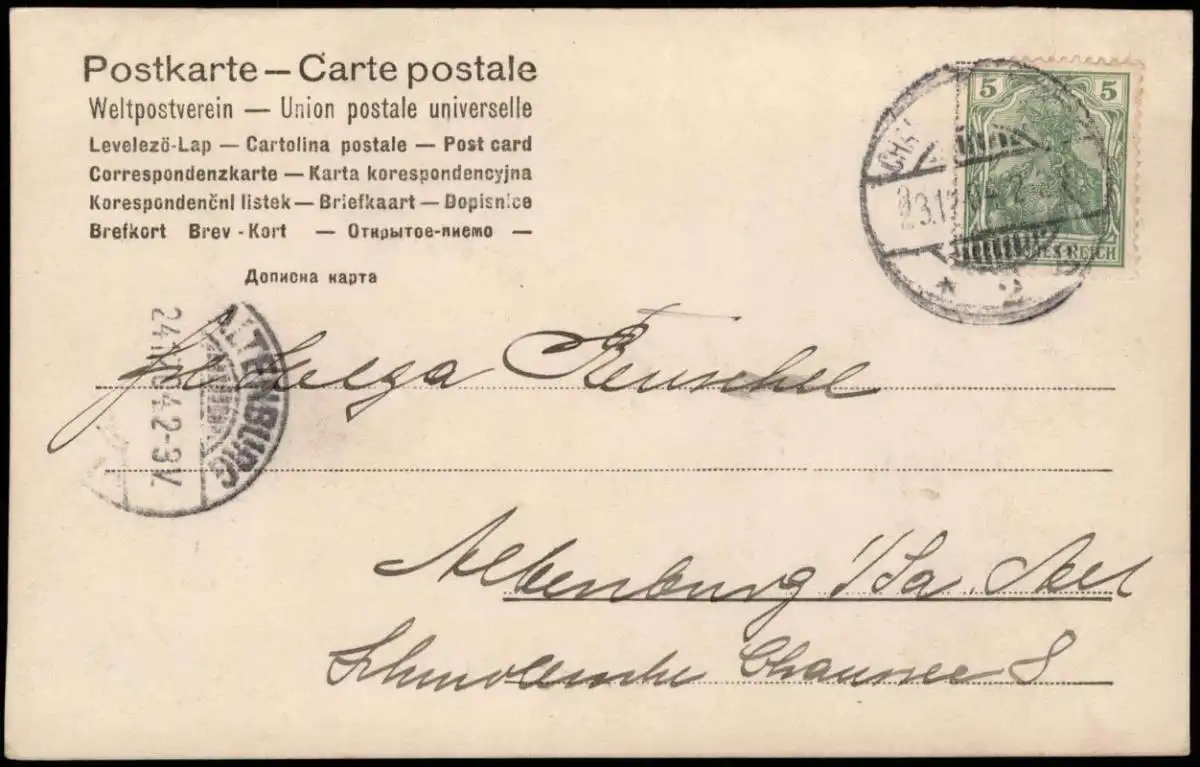 Postkarte — Carte postale
Weltpostverein — Union postale universelle
Levelezö-Lap — Cartolina postale — Post card
Correspondenzkarte — Karta korespondencyjna
Korespondenčni listek — Briefkaart — Dopisnice
Brefkort Brev-Kort — Открытое-пиемо —
Дописна карта
5 5
REICH
* 2
ALTENBURG
2-3V.
Reuschel
Altenburg i/Sa.
Chaussee 8